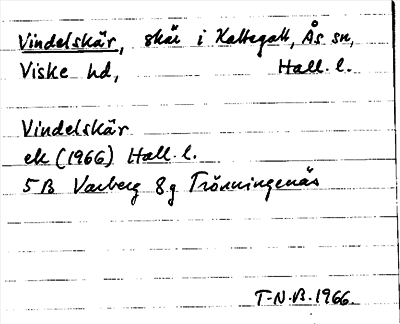 Vindelskär, skär i Kattegatt, Ås sn,
Viske hd, Hall. l.
Vindelskär
ek (1966) Hall. l.
5B Varberg 8g Trönningenäs
T-N.B. 1966.